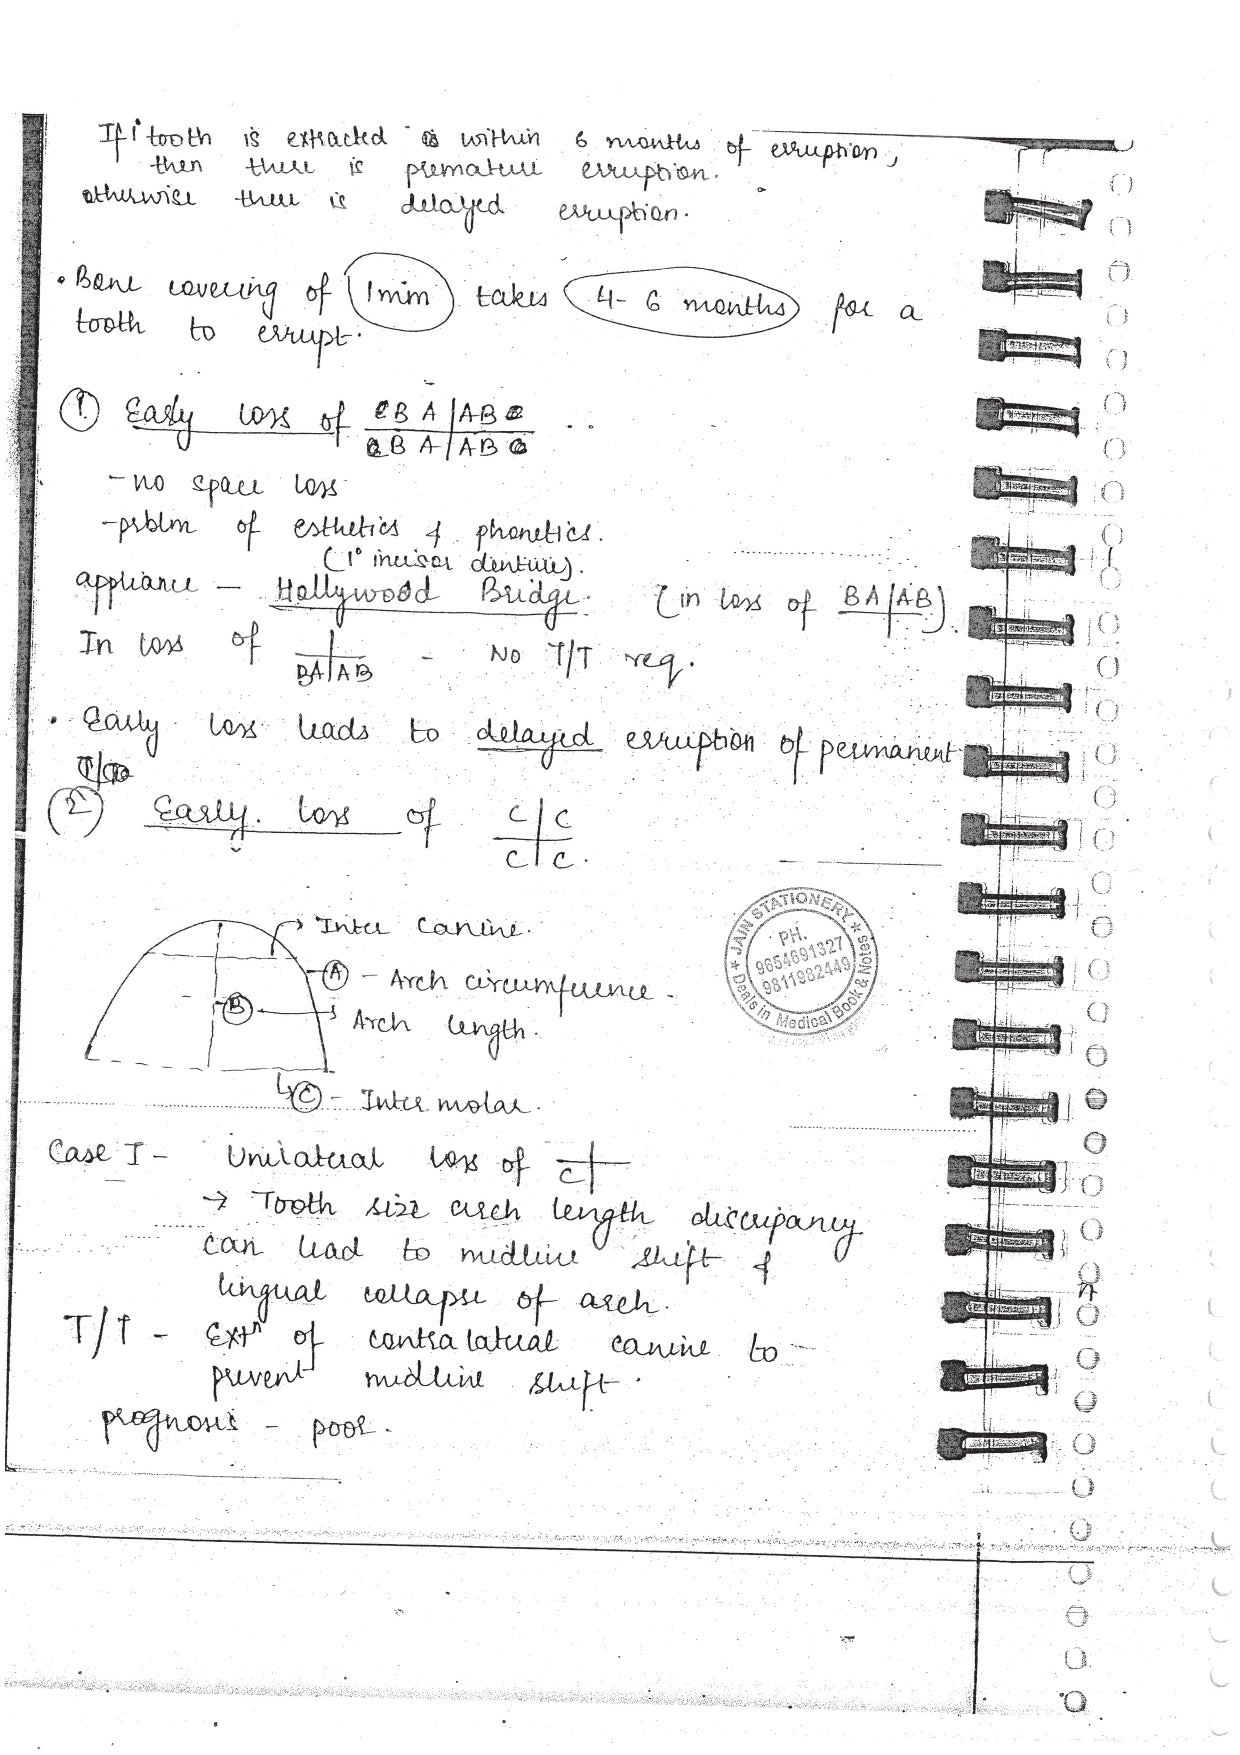 If 1° tooth is extracted within 6 months of erruption,
then there is premature erruption.
otherwise there is delayed erruption.
• Bone covering of 1mm takes 4-6 months for a
tooth to errupt.
① Early loss of CBA|ABC
CBA|ABC
- no space loss
- prblm of esthetics & phonetics.
(1° incisor denture).
appliance - Hollywood Bridge. (in loss of BA|AB).
In loss of BA|AB - No T/T req.
• Early loss leads to delayed erruption of permanent
② Early loss of C|C
C|C.
Inter Canine.
Ⓐ - Arch circumference.
Ⓑ
Arch length.
Ⓒ - Inter molar.
★ JAIN STATIONERY ★
PH.
9654691327
9811982449
Deals in Medical Book & Notes
Case I - Unilateral loss of C|
→ Tooth size arch length discripancy
can lead to midline shift &
lingual collapse of arch.
T/T - Extⁿ of contralateral canine to
prevent midline shift.
prognosis - poor.